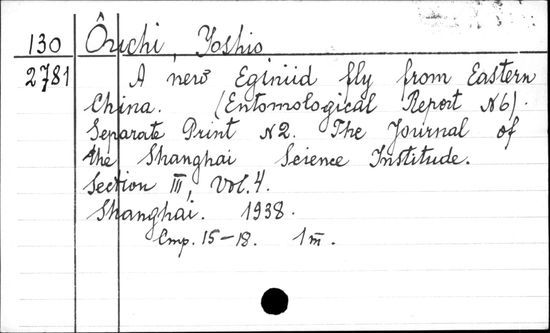 130 Ôuchi, Yoshio
2781 A new Eginiid fly from Eastern
China. (Entomological Report №6).
Separate Print №2. The Journal of
the Shanghai Science Institude.
Section III, Vol. 4.
Shanghai. 1938.
Стр. 15-18. 1 m.